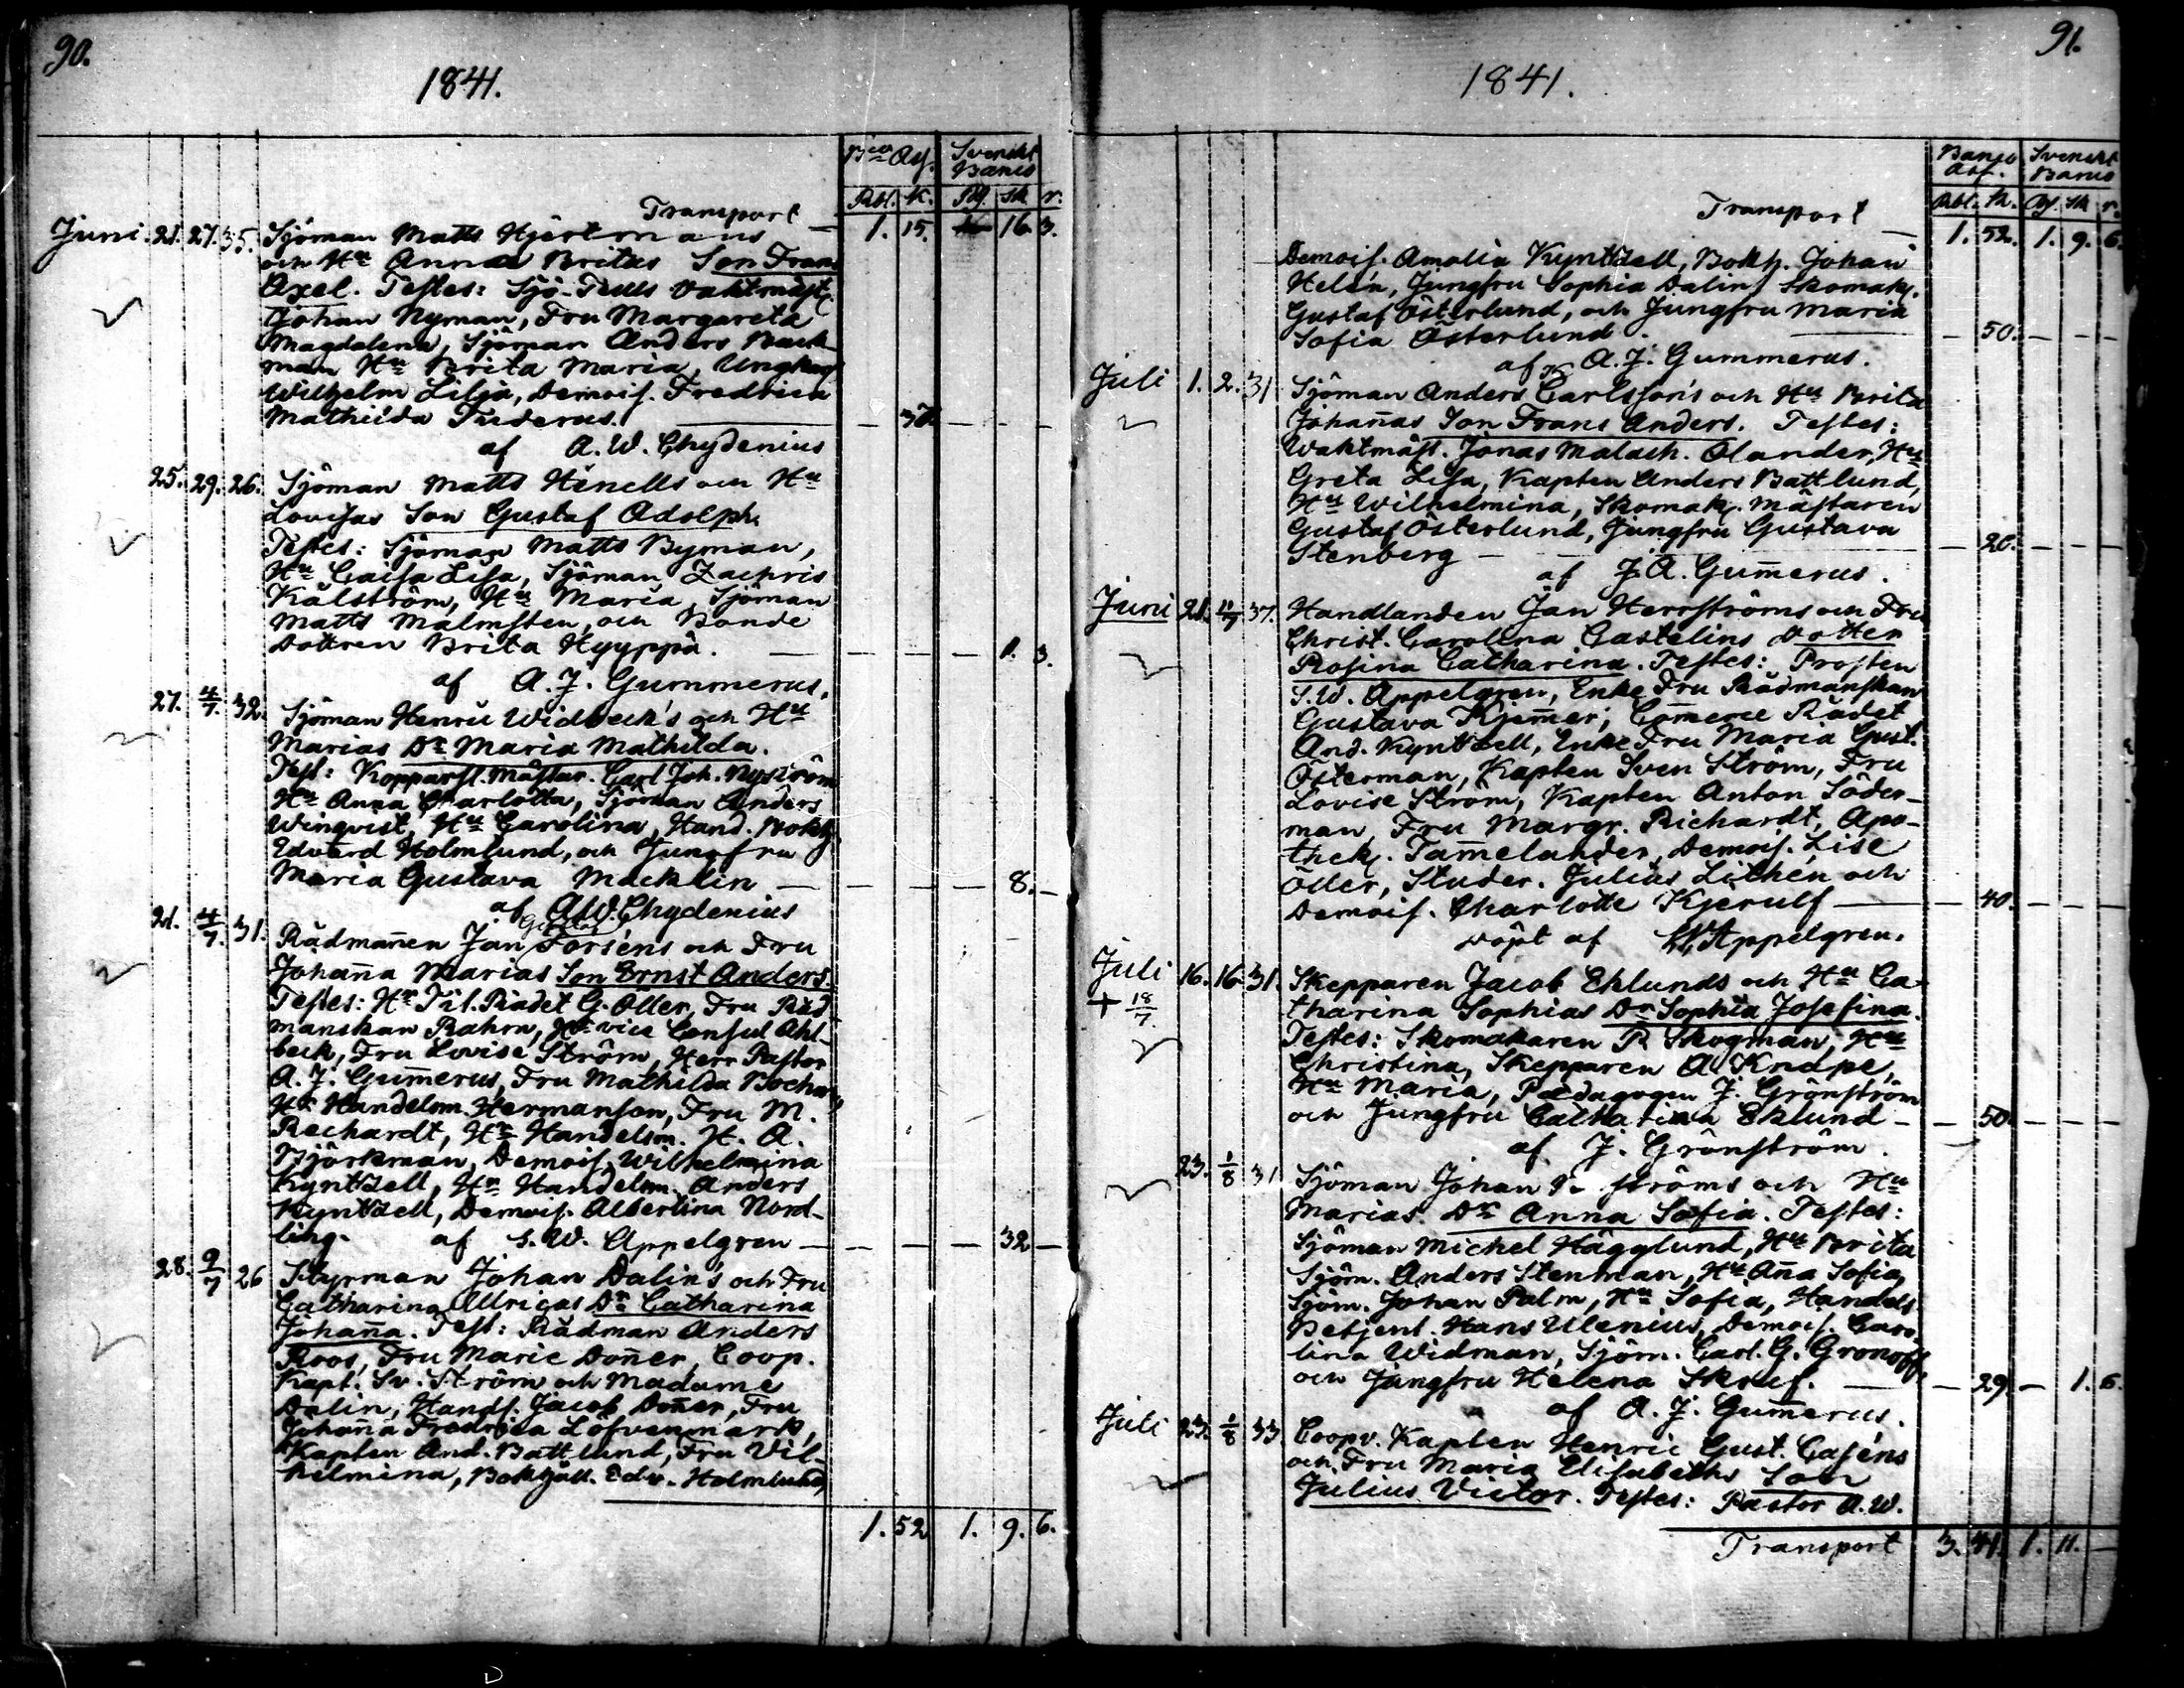 90.
1841.
Bco Ass. Svenskt Banco
Rbl. K. Rg. sk r.
Transport — 1. 15. 16. 3.
Juni. 21. 27. 35. Sjöman Matts Hjertmans
och Hu Annas Britas Son Frans
Axel. Testes: Sjö-Tulls Vaktmäst.
Johan Nyman, Fru Margareta
Magdalena, Sjöman Anders Back-
man Hu Brita Maria, Ungkarl
Wilhelm Lilja, Demois. Fredrica
Mathilda Tuderus. — 37. — — —
af A. W. Chydenius
25. 29. 26. Sjöman Matts Henells och Hu
Lovisas Son Gustaf Adolph.
Testes: Sjöman Matts Byman,
Hu Caisa Lisa, Sjöman Zachris
Kålström, Hu Maria, Sjöman
Matts Malmsten, och Bonde
Dottren Brita Hyyppä. — — — — 1. 3.
af A. J. Gummerus.
27. 4/7. 32. Sjöman Henric Widbeck's och Hu
Marias Dr Maria Mathilda.
Test: Kopparsl. Mästar. Carl Joh. Nyström
Hu Anna Charlotta, Sjöman Anders
Winqvist, Hu Carolina, Hand. Bokh.
Edvard Holmlund, och Jungfru
Maria Gustava Macklin — — — — 8. —
af A.W. Chydenius
21. 4/7. 31. Rådmannen Jan Gustaf Forsens och Fru
Johanna Marias Son Ernst Anders.
Testes: Hr Tit. Rådet G. Öller, Fru Råd
manskan Rahm, Hr vice Consul Ahl-
beck, Fru Lovise Ström, Herr Pastor
A. J. Gummerus, Fru Mathilda
Hr Handelsm. Hermanson, Fru M.
Rechardt, Hr Handelsm. H. A.
Björkman, Demois. Wilhelmina
Kyntzell, Hr Handelsm. Anders
Kyntzell, Demois. Albertina Nord-
ling. af S. W. Appelgren — — — — 32 —
28. 9/7 26 Styrman Johan Dalin's och Fru
Catharina Ulricas Dr Catharina
Johanna. Test: Rådman Anders
Roos, Fru Marie Donner, Coop.
Kapt. Sv. Ström och Madame
Dalin, Handl. Jacob Donner, Fru
Johanna Fredrica Löfvenmark,
Kapten And. Battlund, Fru Vil-
helmina, Bokhåll. Edv. Holmlund,
1. 52 1. 9. 6.
91.
1841.
Banco Ass. Svenskt Banco
Rbl. K. Rg. sk r.
Transport — 1. 52. 1. 9. 6.
Demois. Amalia Kyntzell, Bokh. Johan
Helén, Jungfru Sophia Dalin, Skomak.
Gustaf Österlund, och Jungfru Maria
Sofia Österlund. — — 50. — — —
af A. J. Gummerus.
Juli 1. 2. 31 Sjöman Anders Carlsson's och Hu Brita
Johannas Son Frans Anders. Testes:
Waktmäst. Jonas Malach. Olander, Hu
Greta Lisa, Kapten Anders Battlund,
Hu Wilhelmina, Skomak. Mästaren
Gustaf Österlund, Jungfru Gustava
Stenberg — — 20. — — —
af J. A. Gummerus.
Juni 21. 11/7 37. Handlanden Jan Herrströms och Fru
Christ. Carolina Castelins Dotter
Rosina Catharina. Testes: Prosten
S. W. Appelgren, Enke Fru Rådmanskan
Gustava Kjemmer, Commerce Rådet
And. Kyntzell, Enke Fru Maria Gust.
Österman, Kapten Sven Ström, Fru
Lovise Ström, Kapten Anton Söder-
man, Fru Margr. Richardt, Apo-
thek. Tammelander, Demois. Lise
Öller, Studer. Julius Lithén och
Demois. Charlotte Kjerulf — — 40. — — —
Döpt af S.W. Appelgren.
Juli 16. 16. 31. Skepparen Jacob Eklunds och Hu Ca-
+ 18/7. tharina Sophias Dr Sophia Josefina.
Testes: Skomakaren P. Skogman, Hu
Christina, Skepparen A. Knape,
Hu Maria, Pædagogen J. Grönström
och Jungfru Catharina Eklund — — 50. — — —
af J. Grönström.
23. 1/8 31 Sjöman Johan ströms och Hu
Marias Dr Anna Sofia. Testes:
Sjöman Michel Hägglund, Hu Brita
Sjöm. Anders Stenman, Hu Anna Sofia,
Sjöm. Johan Palm, Hu Sofia, Handels
Betjent. Hans Ulenius, Demois. Caro-
lina Widman, Sjöm. Carl. G. Gronoff,
och Jungfru Helena Skruf. — — 29 — 1. 6.
af A. J. Gummerus.
Juli 23. 1/8 33 Coopv. Kapten Henric Gust. Caséns
och Fru Maria Elisabeths Son
Julius Victor. Testes: Pastor A. W.
Transport 3. 41. 1. 11. —